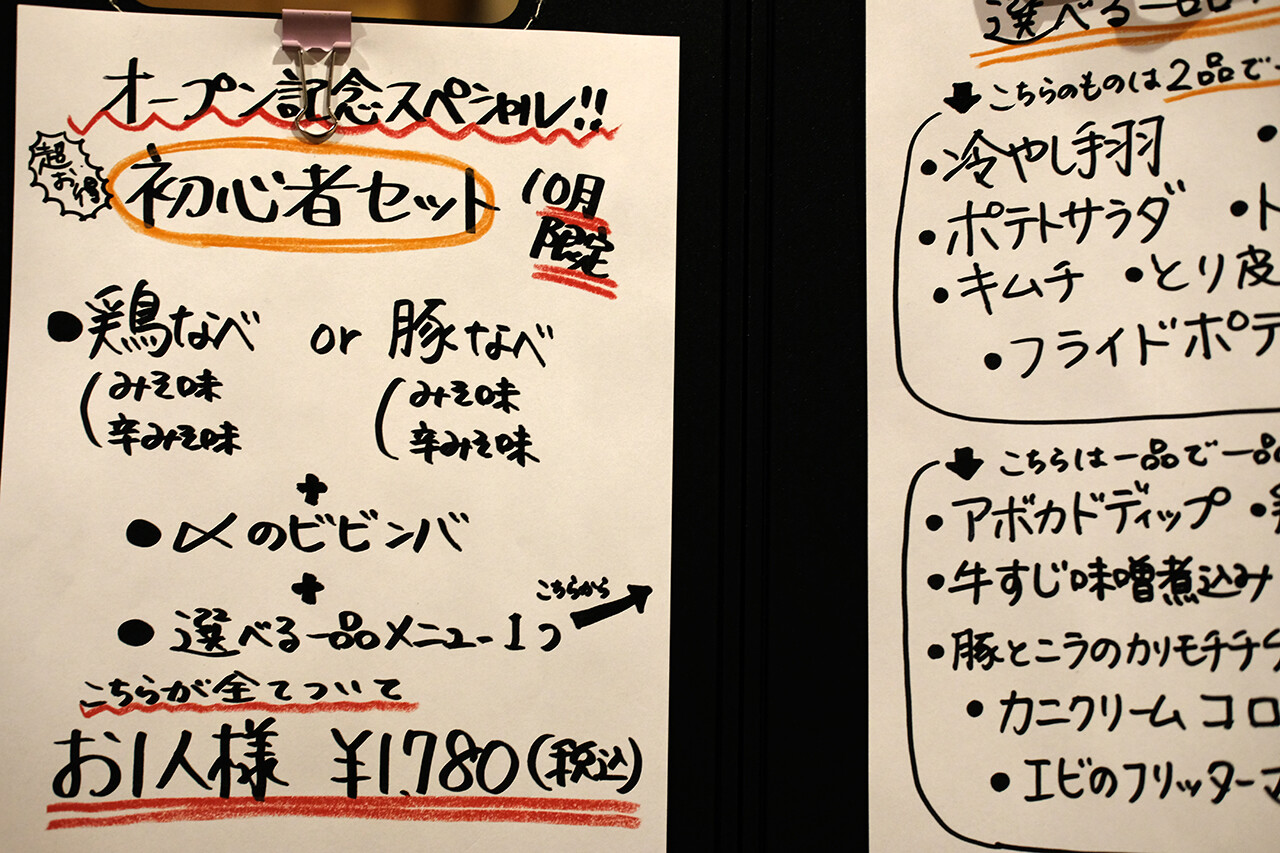 オープン記念スペシャル!!
超お得
初心者セット
10月
限定
●鶏なべ or 豚なべ
(みそ味 (みそ味
辛みそ味 辛みそ味
+
●〆のビビンバ
+
こちらから
●選べる一品メニュー1つ
こちらが全てついて
お1人様 ¥1.780(税込)
選べる一品
こちらのものは2品で
●冷やし手羽
●ポテトサラダ ●ト
●キムチ ●とり皮
●フライドポテ
こちらは一品で一品
●アボカドディップ
●牛すじ味噌煮込み
●豚とニラのカリモチチ
●カニクリームコロ
●エビのフリッターマ